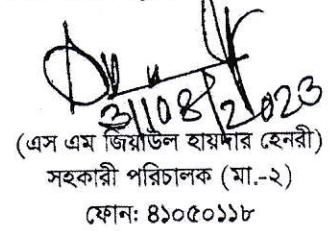 31/08/2023
(এস এম জিয়াউল হায়দার হেনরী)
সহকারী পরিচালক (মা.-২)
ফোন: ৪১০৫০১১৮